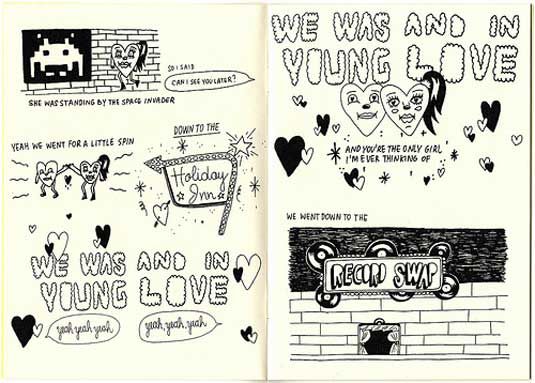 SO I SAID
CAN I SEE YOU LATER?
SHE WAS STANDING BY THE SPACE INVADER
YEAH WE WENT FOR A LITTLE SPIN
DOWN TO THE
Holiday
Inn
WE WAS AND IN
YOUNG LOVE
yeah yeah yeah
yeah, yeah, yeah
WE WAS AND IN
YOUNG LOVE
AND YOU'RE THE ONLY GIRL
I'M EVER THINKING OF
WE WENT DOWN TO THE
RECORD SWAP